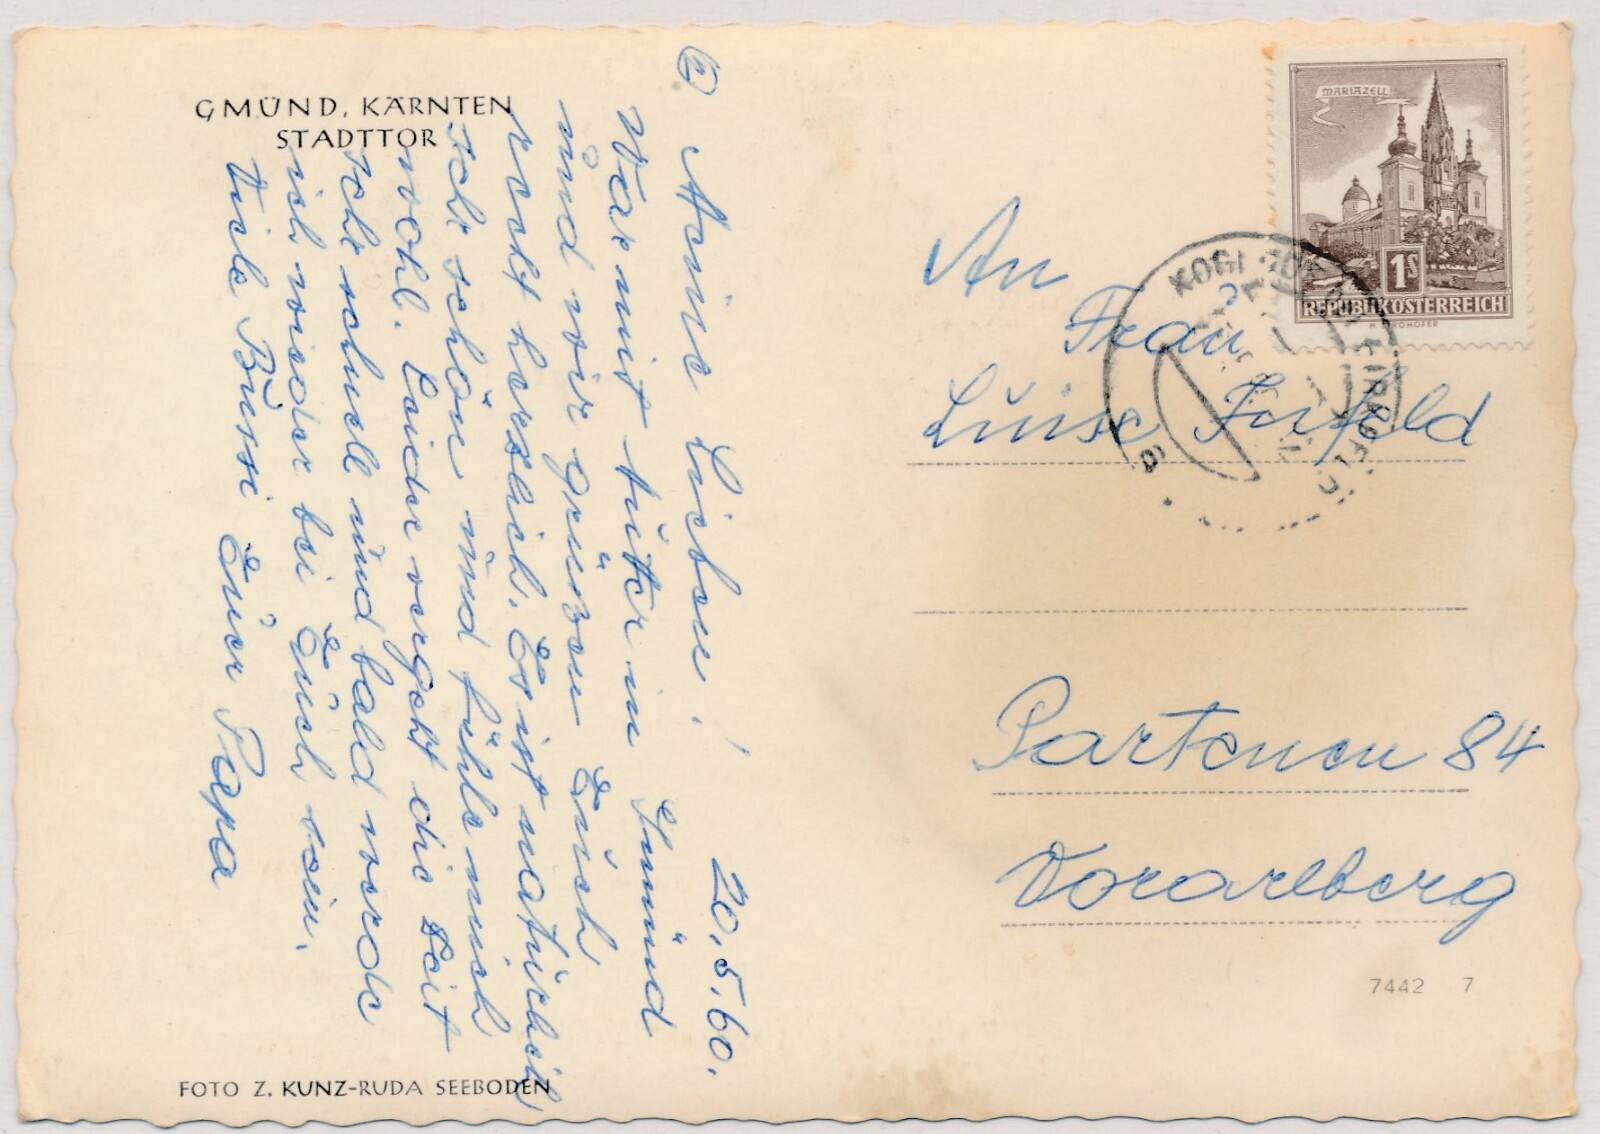 GMÜND, KÄRNTEN
STADTTOR
②
20.5.60.
Meine Lieben!
War mit Mutter in Gmünd
und wir grüßen Euch
recht herzlich. Es ist natürlich
sehr schön und fühle mich
wohl. Leider vergeht die Zeit
sehr schnell und bald werde
ich wieder bei Euch sein.
Viele Bussi Euer Papa
FOTO Z. KUNZ-RUDA SEEBODEN
MARIAZELL
1S
REPUBLIK ÖSTERREICH
An
Frau
Luise Infeld
Partenen 84
Vorarlberg
7442 7